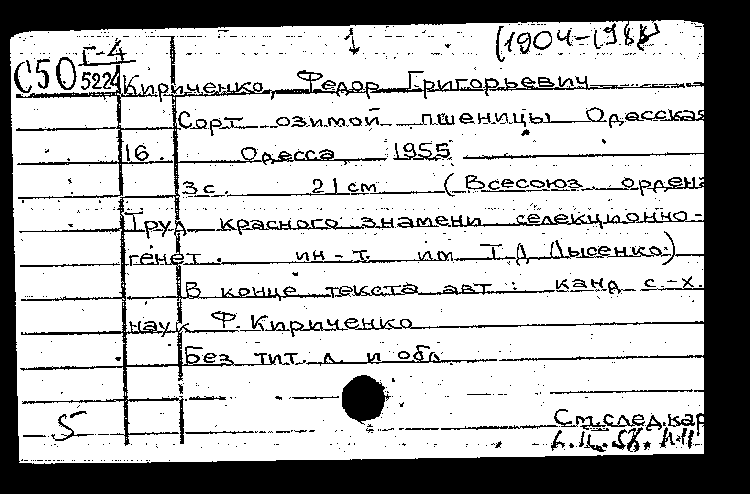 1 (1904-198
Г-4
С50 5224 Кириченко, Федор Григорьевич
Сорт озимой пшеницы Одесская
16. Одесса 1955
3с. 21см (Всесоюз. ордена
Труд красного знамени селекционно-
генет. ин-т. им Т.Д Лысенко)
В конце текста авт: канд с.-х.
наук Ф. Кириченко
Без тит. л. и обл
См.след.кар
5